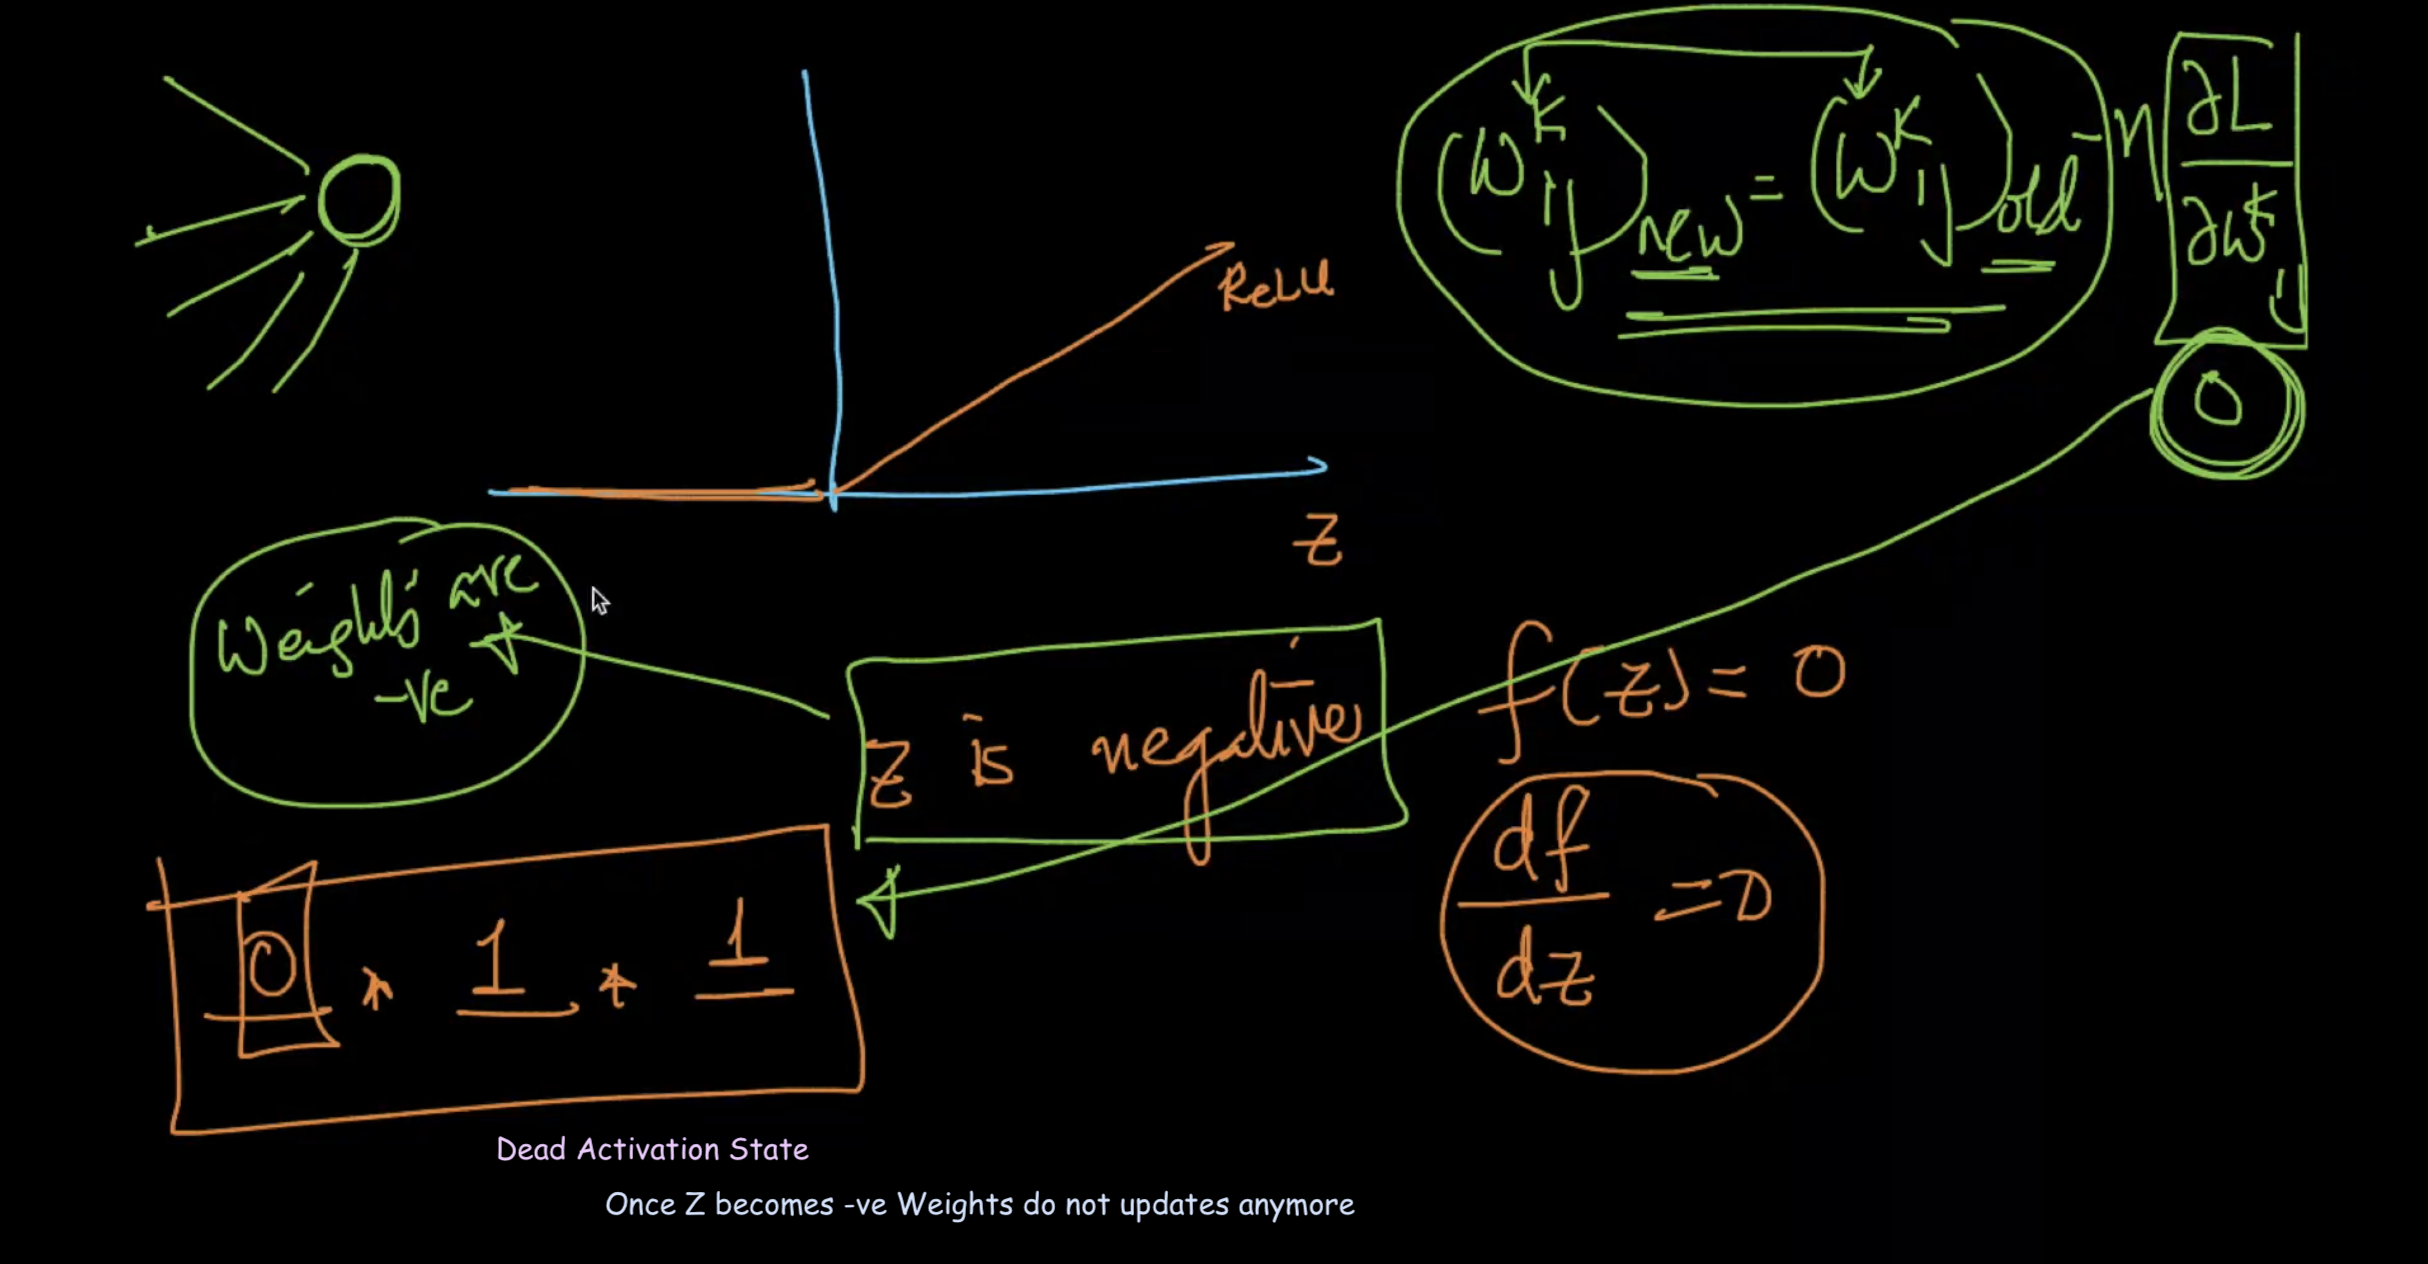 ReLU
Z
(W^K_ij)_new = (W^K_ij)_old - η ∂L/∂W^K_ij
0
Weights are
-ve
Z is negative
f(z) = 0
df/dz = 0
0 * 1 * 1
Dead Activation State
Once Z becomes -ve Weights do not updates anymore